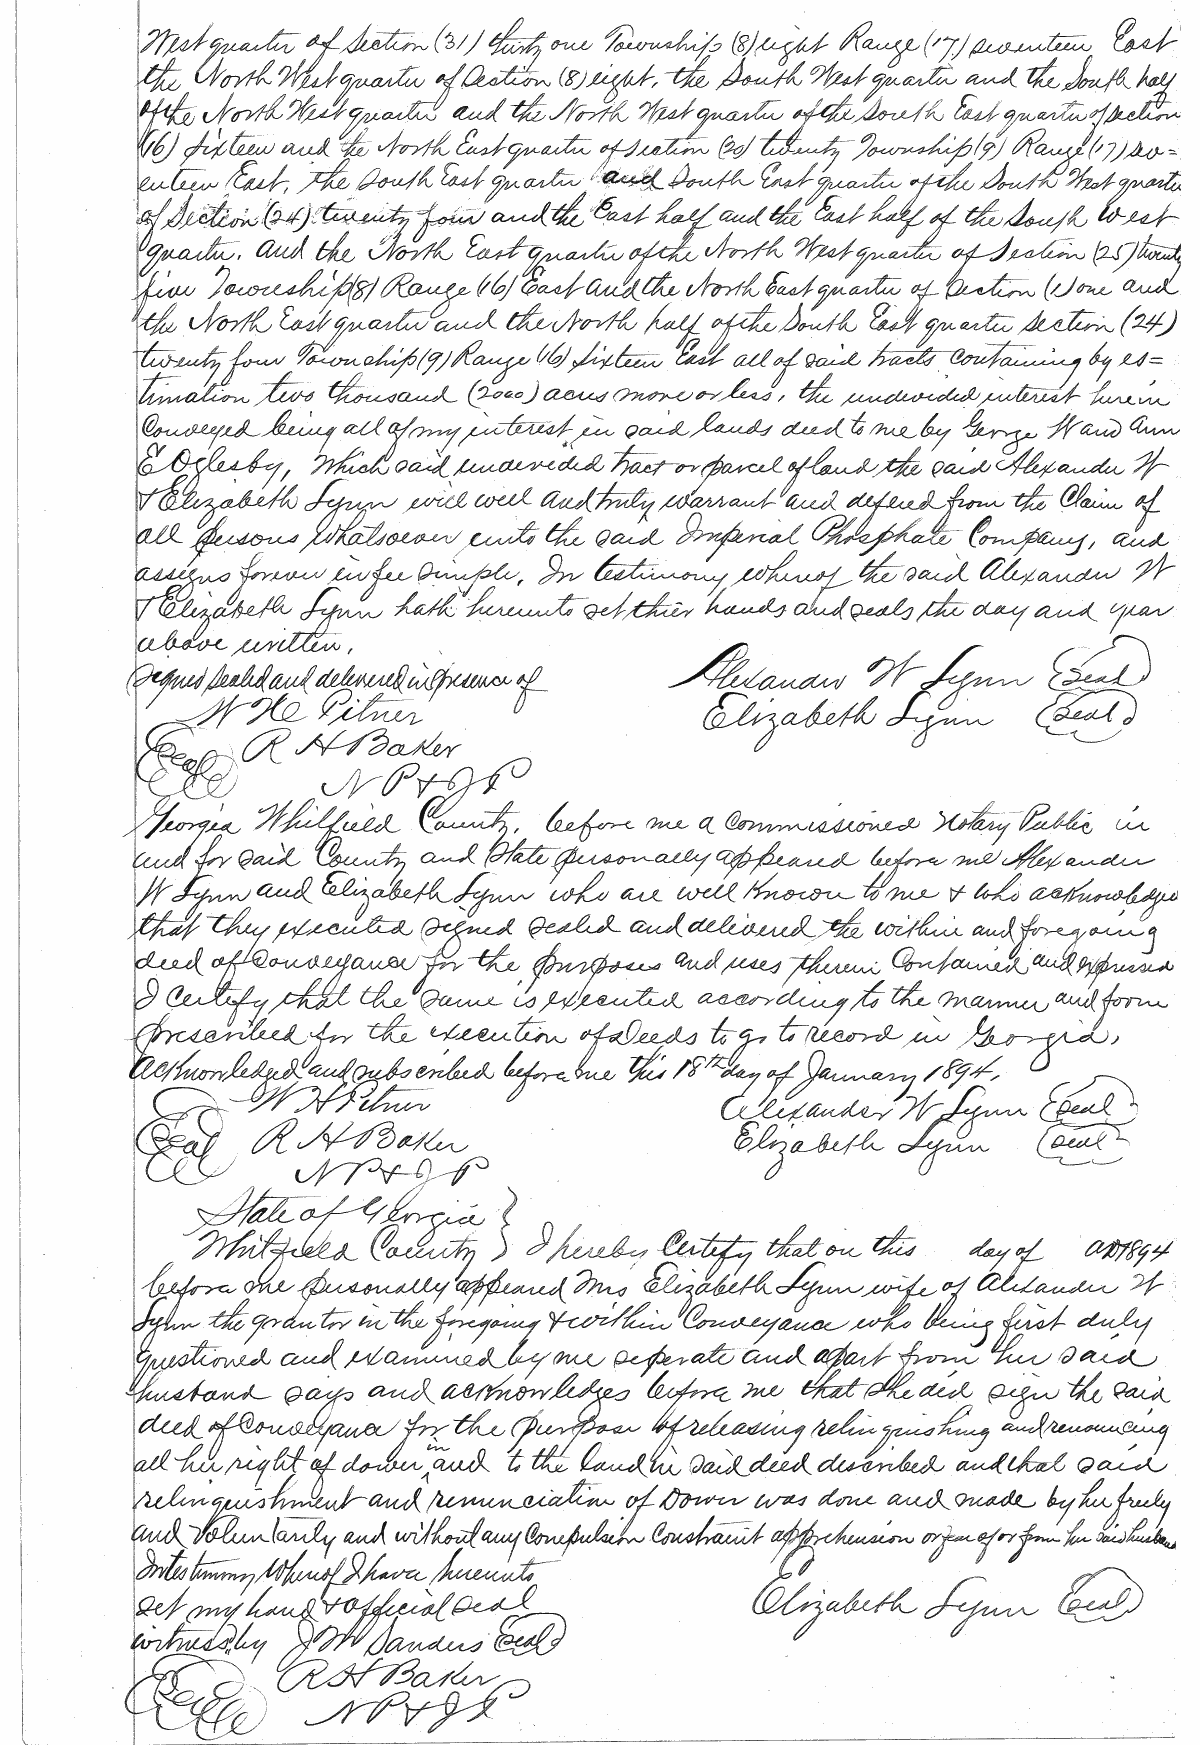 West quarter of Section (31) thirty one Township (8) eight Range (17) seventeen East
the North West quarter of Section (8) eight, the South West quarter and the South half
of the North West quarter and the North West quarter of the South East quarter of Section
(16) sixteen and the North East quarter of Section (20) twenty Township (9) Range (17) sev=
enteen East, the South East quarter and South East quarter of the South West quarter
of Section (24) twenty four and the East half and the East half of the South West
quarter. and the North East quarter of the North West quarter of Section (25) twenty
five Township (8) Range (16) East and the North East quarter of Section (1) one and
the North East quarter and the North half of the South East quarter section (24)
twenty four Township (9) Range (16) sixteen East all of said tracts containing by es=
timation two thousand (2000) acres more or less, the undevided interest herein
Conveyed being all of my interest in said lands deed to me by George W and Ann
E Oglesby, Which said undevided tract or parcel of land the said Alexander W
& Elizabeth Lynn will well and truly warrant and defend from the Claim of
all persons whatsoever unto the said Imperial Phosphate Company, and
assigns forever in fee simple. In testimony whereof the said Alexander W
& Elizabeth Lynn hath hereunto set thier hands and seals the day and year
above written.
Signed sealed and delivered in presence of
Alexander W Lynn (Seal)
W H C Pitner
Elizabeth Lynn (Seal)
(Seal) R H Baker
N P & J P
Georgia Whitfield County. before me a commissioned Notary Public in
and for said County and State personally appeared before me Alexander
W Lynn and Elizabeth Lynn who are well Known to me & who acknowledge
that they executed signed sealed and delivered the within and foregoing
deed of Conveyance for the purposes and uses therein Contained and expressed
I certify that the same is executed according to the manner and form
prescribed for the execution of Deeds to go to record in Georgia.
Acknowledged and subscribed before me this 18th day of January 1894.
W H Pitner
Alexander W Lynn (Seal)
(Seal) R H Baker
Elizabeth Lynn (Seal)
N P & J P
State of Georgia }
Whitfield County } I hereby Certify that on this day of AD 1894
before me personally appeared Mrs Elizabeth Lynn wife of Alexander W
Lynn the grantor in the foregoing & within Conveyance who being first duly
questioned and examined by me seperate and apart from her said
husband says and acknowledges before me that she did sign the said
deed of Conveyance for the purpose of releasing relinquishing and renouncing
all her right of dower in and to the land in said deed described and that said
relinquishment and renunciation of Dower was done and made by her freely
and Voluntarily and without any Compulsion Constraint apprehension or fear of or from her said husband
In testimony Whereof I have hereunto
set my hand & official seal
Elizabeth Lynn (Seal)
witness by J M Sanders (Seal)
R H Baker
(Seal) N P & J P